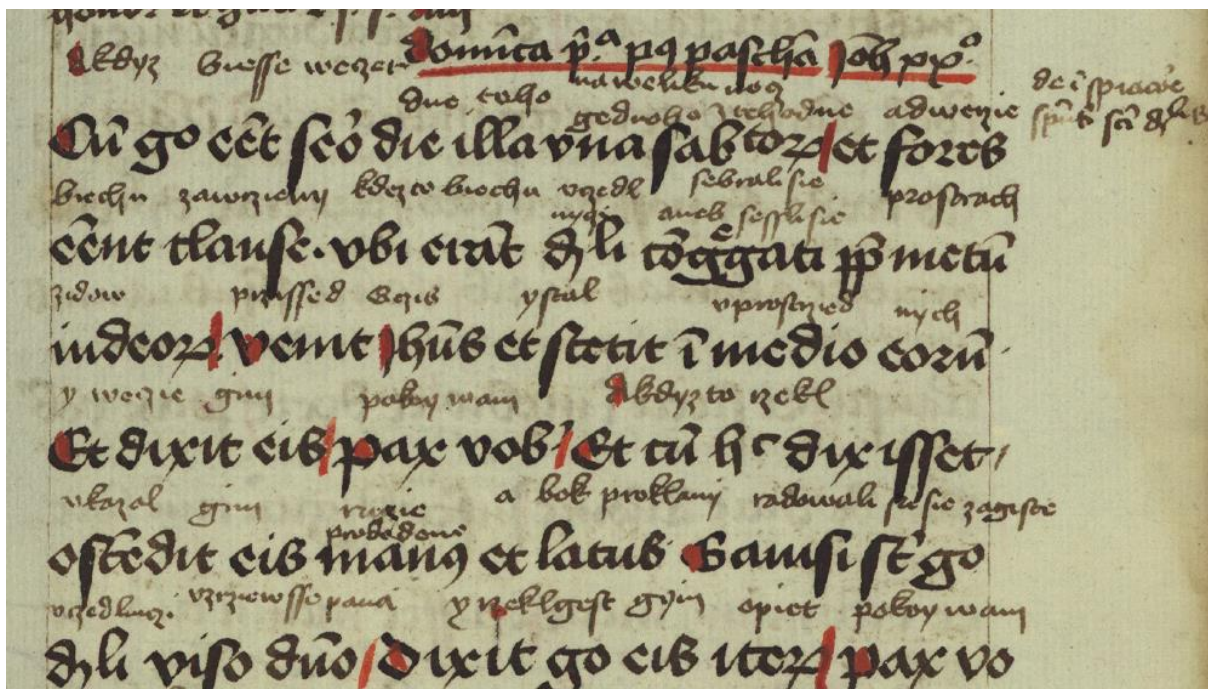 Akdyz biesse weczer domīca p̄ᵃ pꝰ paschā Joh̄ xxº
dne toho na weliku nocz
gednoho tehodne adwerzie
Cū gº eēt seō die illa vna sabtoꝝ et fores
biechu zawrzieny kdezto biechu vczedl sebrali sie prostrach
nyczi aneb sessli sie
eēnt clause. vbi erāt dꝶli cōgᵉgati ꝓp metū
zidow przissed Gezis ystal vprostrzied nych
iudeoꝝ venit Jhūs et stetit ī medio eorū
y wecze gim pokoy wam Akdyzto rzekl
Et dixit eis pax vob᾽ Et cū hᶜ dixisset
vkazal gim rucze a bok proklany radowali su sie zagiste
ostēdit eis manꝰ et latus Gauisi sūt gº
vczedlnyczi vzrziewsse pana y rzeklgest gym opiet pokoy wam
dꝶli viso dn̄o Dixit gº eis iteꝝ pax vo